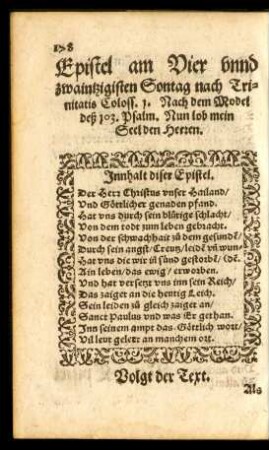 178
Epistel am Vier vnnd
zwaintzigisten Sontag nach Tri-
nitatis Coloss. 1. Nach dem Model
deß 103. Psalm. Nun lob mein
Seel den Herren.
Innhalt diser Epistel.
Der Herr Christus vnser Hailand/
Vnd Göttlicher genaden pfand.
Hat vns durch sein blůtige schlacht/
Von dem todt zum leben gebracht.
Von der schwachhait zů dem gesundẽ/
Durch sein angst/ Creutz/ leidẽ vñ wun/
Hat vns die wir in sünd gestorbẽ/ (dẽ.
Ain leben/ das ewig/ erworben.
Vnd hat versetzt vns inn sein Reich/
Das zaiget an die heutig Leich.
Sein leiden zů gleich zaiget an/
Sanct Paulus vnd was Er gethan.
Inn seinem ampt das Göttlich wort/
Vil leut geleret an manchem ort.
Volgt der Text.
Als